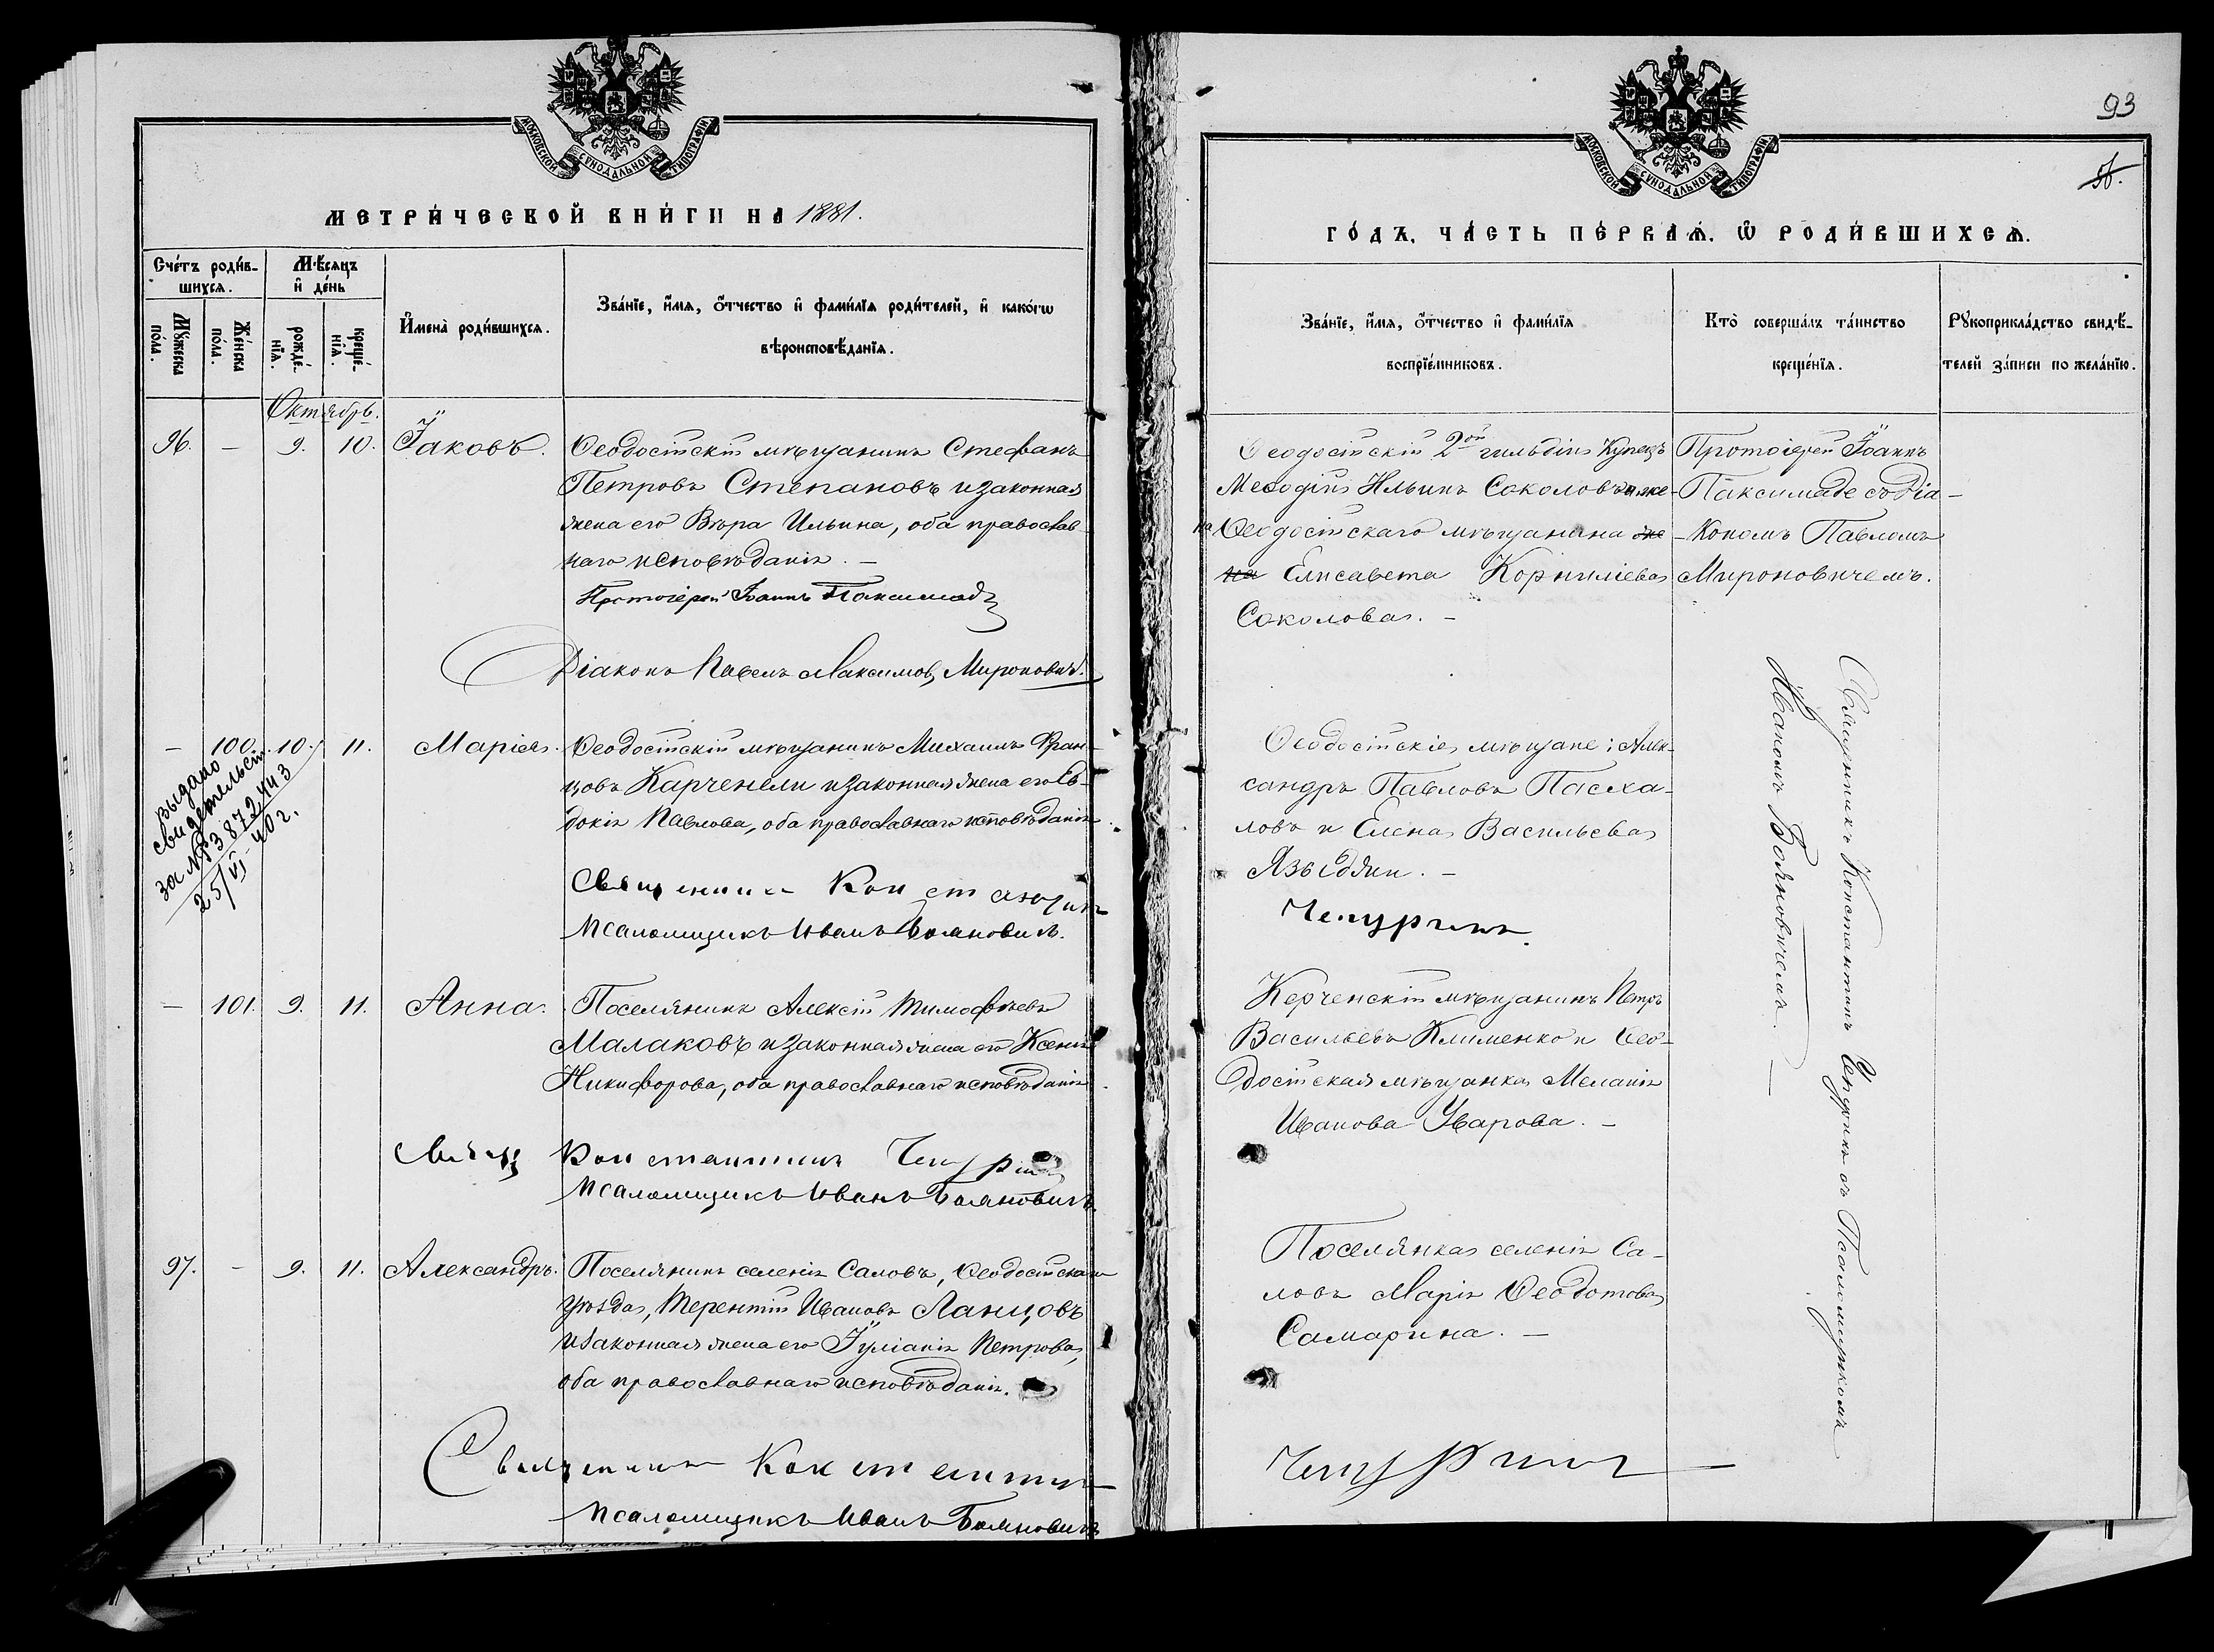 МОСКОВСКОЙ СѴНОДАЛЬНОЙ ТИПОГРАФІИ
МЕТРИ́ЧЕСКОЙ КНИ́ГИ НА 1881.
Сче́тъ роди́в-
шихсѧ.
Мѣ́сѧцъ
и҆ де́нь
Мꙋ́жеска
по́ла.
Же́нска
по́ла.
рожде́-
нїѧ.
креще́-
нїѧ.
И҆мена̀ роди́вшихсѧ.
Зва́нїе, и҆́мѧ, ѻ҆́тчество и҆ фами́лїѧ роди́телей, и҆ како́гѡ
вѣроисповѣ́данїѧ.
Октябрь.
96. — 9. 10. Іаковъ.
Ѳеодосійскій мѣщанинъ Стефанъ
Петровъ Степановъ и законная
жена его Вѣра Ильина, оба православ-
наго исповѣданія. —
Протоіерей Іоаннъ Паксимаде
Діаконъ Павелъ Максимов. Мироновичъ.
— 100. 10. 11. Марія.
Ѳеодосійскій мѣщанинъ Михаилъ Фран-
цовъ Карченели и законная жена его Ев-
докія Павлова, оба православнаго исповѣданія.
выдано
свидетельств
за № 3872443
25/VI 40 г.
Священникъ Константинъ
Псаломщикъ Иванъ Бояновичъ.
— 101. 9. 11. Анна.
Поселянинъ Алексій Тимофѣевъ
Малаковъ и законная жена его Ксенія
Никифорова, оба православнаго исповѣданія.
Свящ Константинъ Чепуринъ
Псаломщикъ Иванъ Бояновичъ.
97. — 9. 11. Александръ.
Поселянинъ селенія Саловъ, Ѳеодосійскаго
уѣзда, Терентій Ивановъ Ланцовъ
и законная жена его Іуліанія Петрова,
оба православнаго исповѣданія.
Священникъ Константинъ
Псаломщикъ Иванъ Бояновичъ
93
МОСКОВСКОЙ СѴНОДАЛЬНОЙ ТИПОГРАФІИ
ГО́ДЪ. ЧА́СТЬ ПЕ́РВАѦ. Ѡ҆ РОДИ́ВШИХСѦ.
Зва́нїе, и҆́мѧ, ѻ҆́тчество и҆ фами́лїѧ
воспрїе́мниковъ.
Кто̀ соверша́лъ та́инство
креще́нїѧ.
Рꙋкоприкла́дство свидѣ́-
телей за́писи по жела́нїю.
Ѳеодосійскій 2ой гильдіи Купецъ
Меѳодій Ильинъ Соколовъ и же-
на Ѳеодосійскаго мѣщанина же
на Елисавета Корниліева
Соколова. —
Протоіерей Іоаннъ
Паксимаде съ Діа-
кономъ Павломъ
Мироновичемъ.
Ѳеодосійскіе мѣщане: Алек-
сандръ Павловъ Пасха-
ловъ и Елена Васильева
Языджи. —
Чепуринъ.
Керченскій мѣщанинъ Петръ
Васильевъ Клименко и Ѳео-
досійская мѣщанка Меланія
Иванова Уварова. —
Поселянка селенія Са-
ловъ Марія Ѳеодотова
Самарина. —
Чепуринъ
Священникъ Константинъ Чепуринъ съ Псаломщикомъ
Иваномъ Бояновичемъ. —